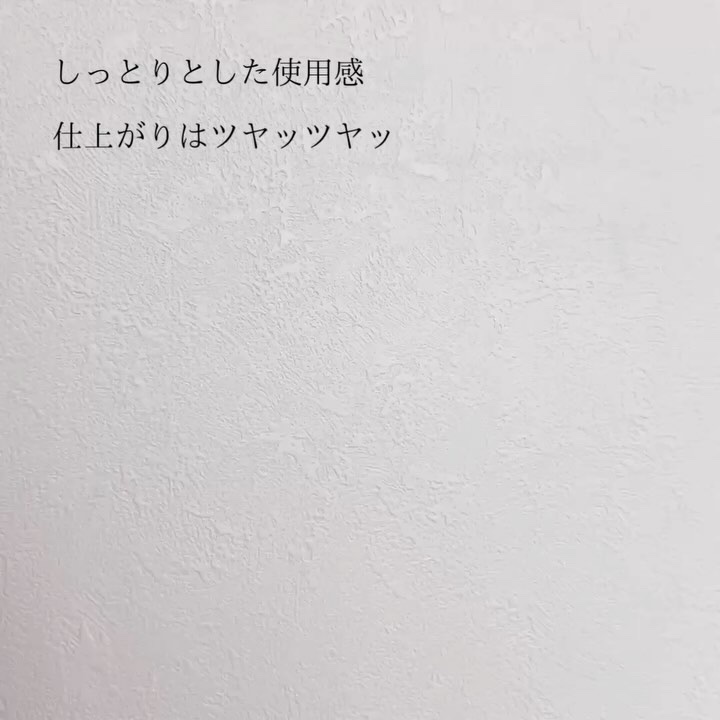 しっとりとした使用感
仕上がりはツヤッツヤッ